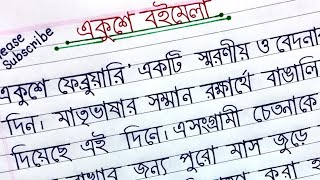 ease
subscribe
একুশে বইমেলা
একুশে ফেব্রুয়ারি' একটি স্মরণীয় ও বেদনার
দিন। মাতৃভাষার সম্মান রক্ষার্থে বাঙালি
দিয়েছে এই দিনে। এ সংগ্রামী চেতনাকে
জন্য পুরো মাস জুড়ে
করা হ